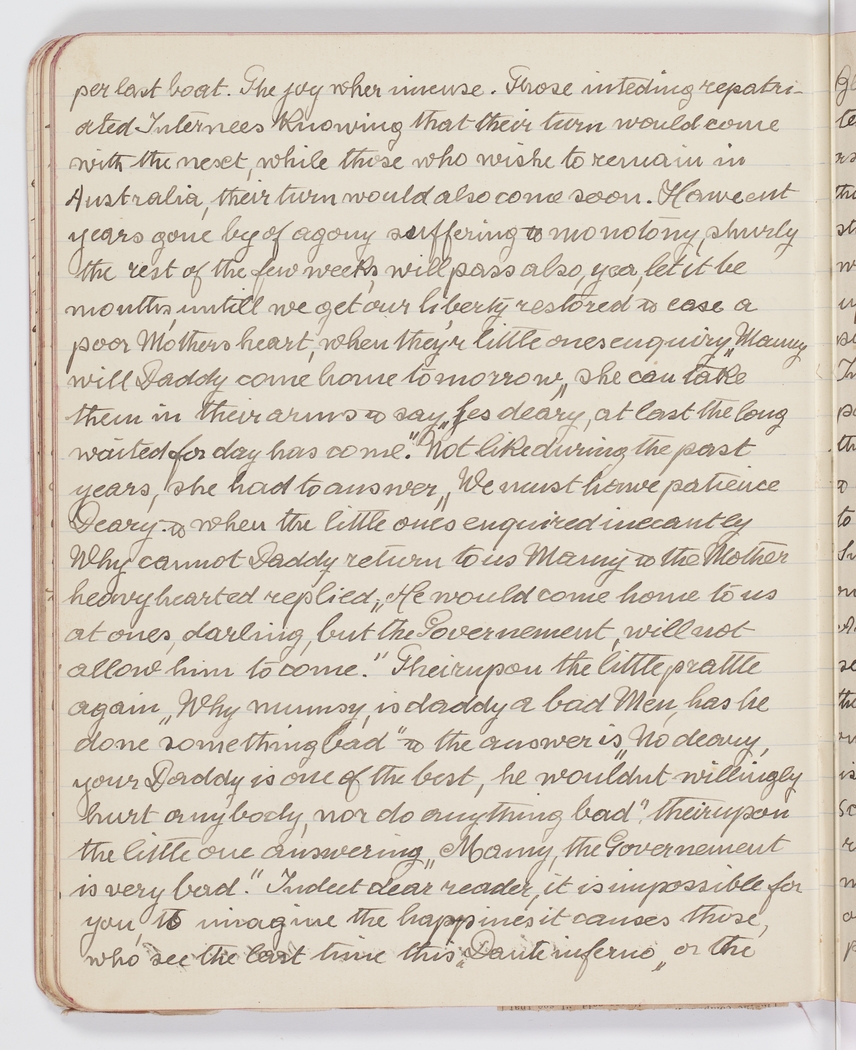 per last boat. The joy wher imense. Those inteding repatri-
ated Internees knowing that their turn would come
with the next, while those who wishe to remain in
Australia, their turn would also come soon. Have ent
years gone by of agony suffering & monotony, shurly
the rest of the few weeks will pass also, yea, let it be
months, untill we get our liberty restored & ease a
poor Mothers heart, when they'r little ones enquiry „Mamy
will Daddy come home tomorrow„ she can take
them in their arms & say „yes deary, at last the long
waited for day has come." Not like during the past
years, she had to answer „We must have patience
Deary. & when the little ones enquired inecantly
Why cannot Daddy return to us Mamy & the Mother
heavyhearted replied, „He would come home to us
at ones, darling, but the Governement, will not
allow him to come." Theirupon the little prattle
again „Why mumsy, is daddy a bad Men, has he
done something bad" & the answer is „No deary,
your Daddy is one of the best, he would'nt willingly
hurt anybody, nor do anything bad". theirupon
the little one answering „Mamy, the Governement
is very bad." Indeet dear reader, it is impossible for
you, to imagine the happines it causes those,
who see the last time this „Dante inferno„ or the